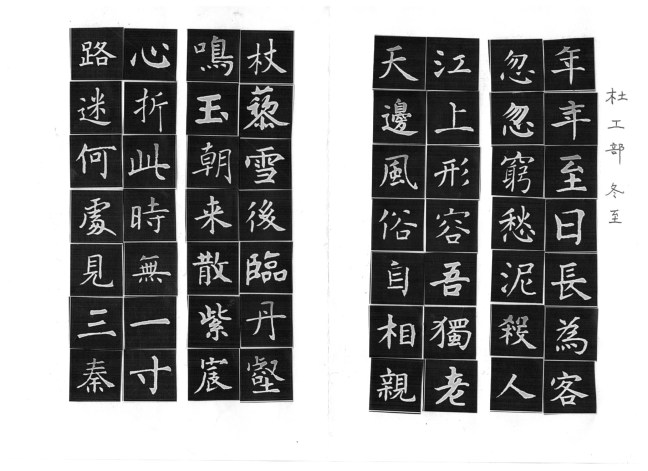 杜工部 冬至
年年至日長為客
忽忽窮愁泥殺人
江上形容吾獨老
天邊風俗自相親
杖藜雪後臨丹壑
鳴玉朝来散紫宸
心折此時無一寸
路迷何處見三秦